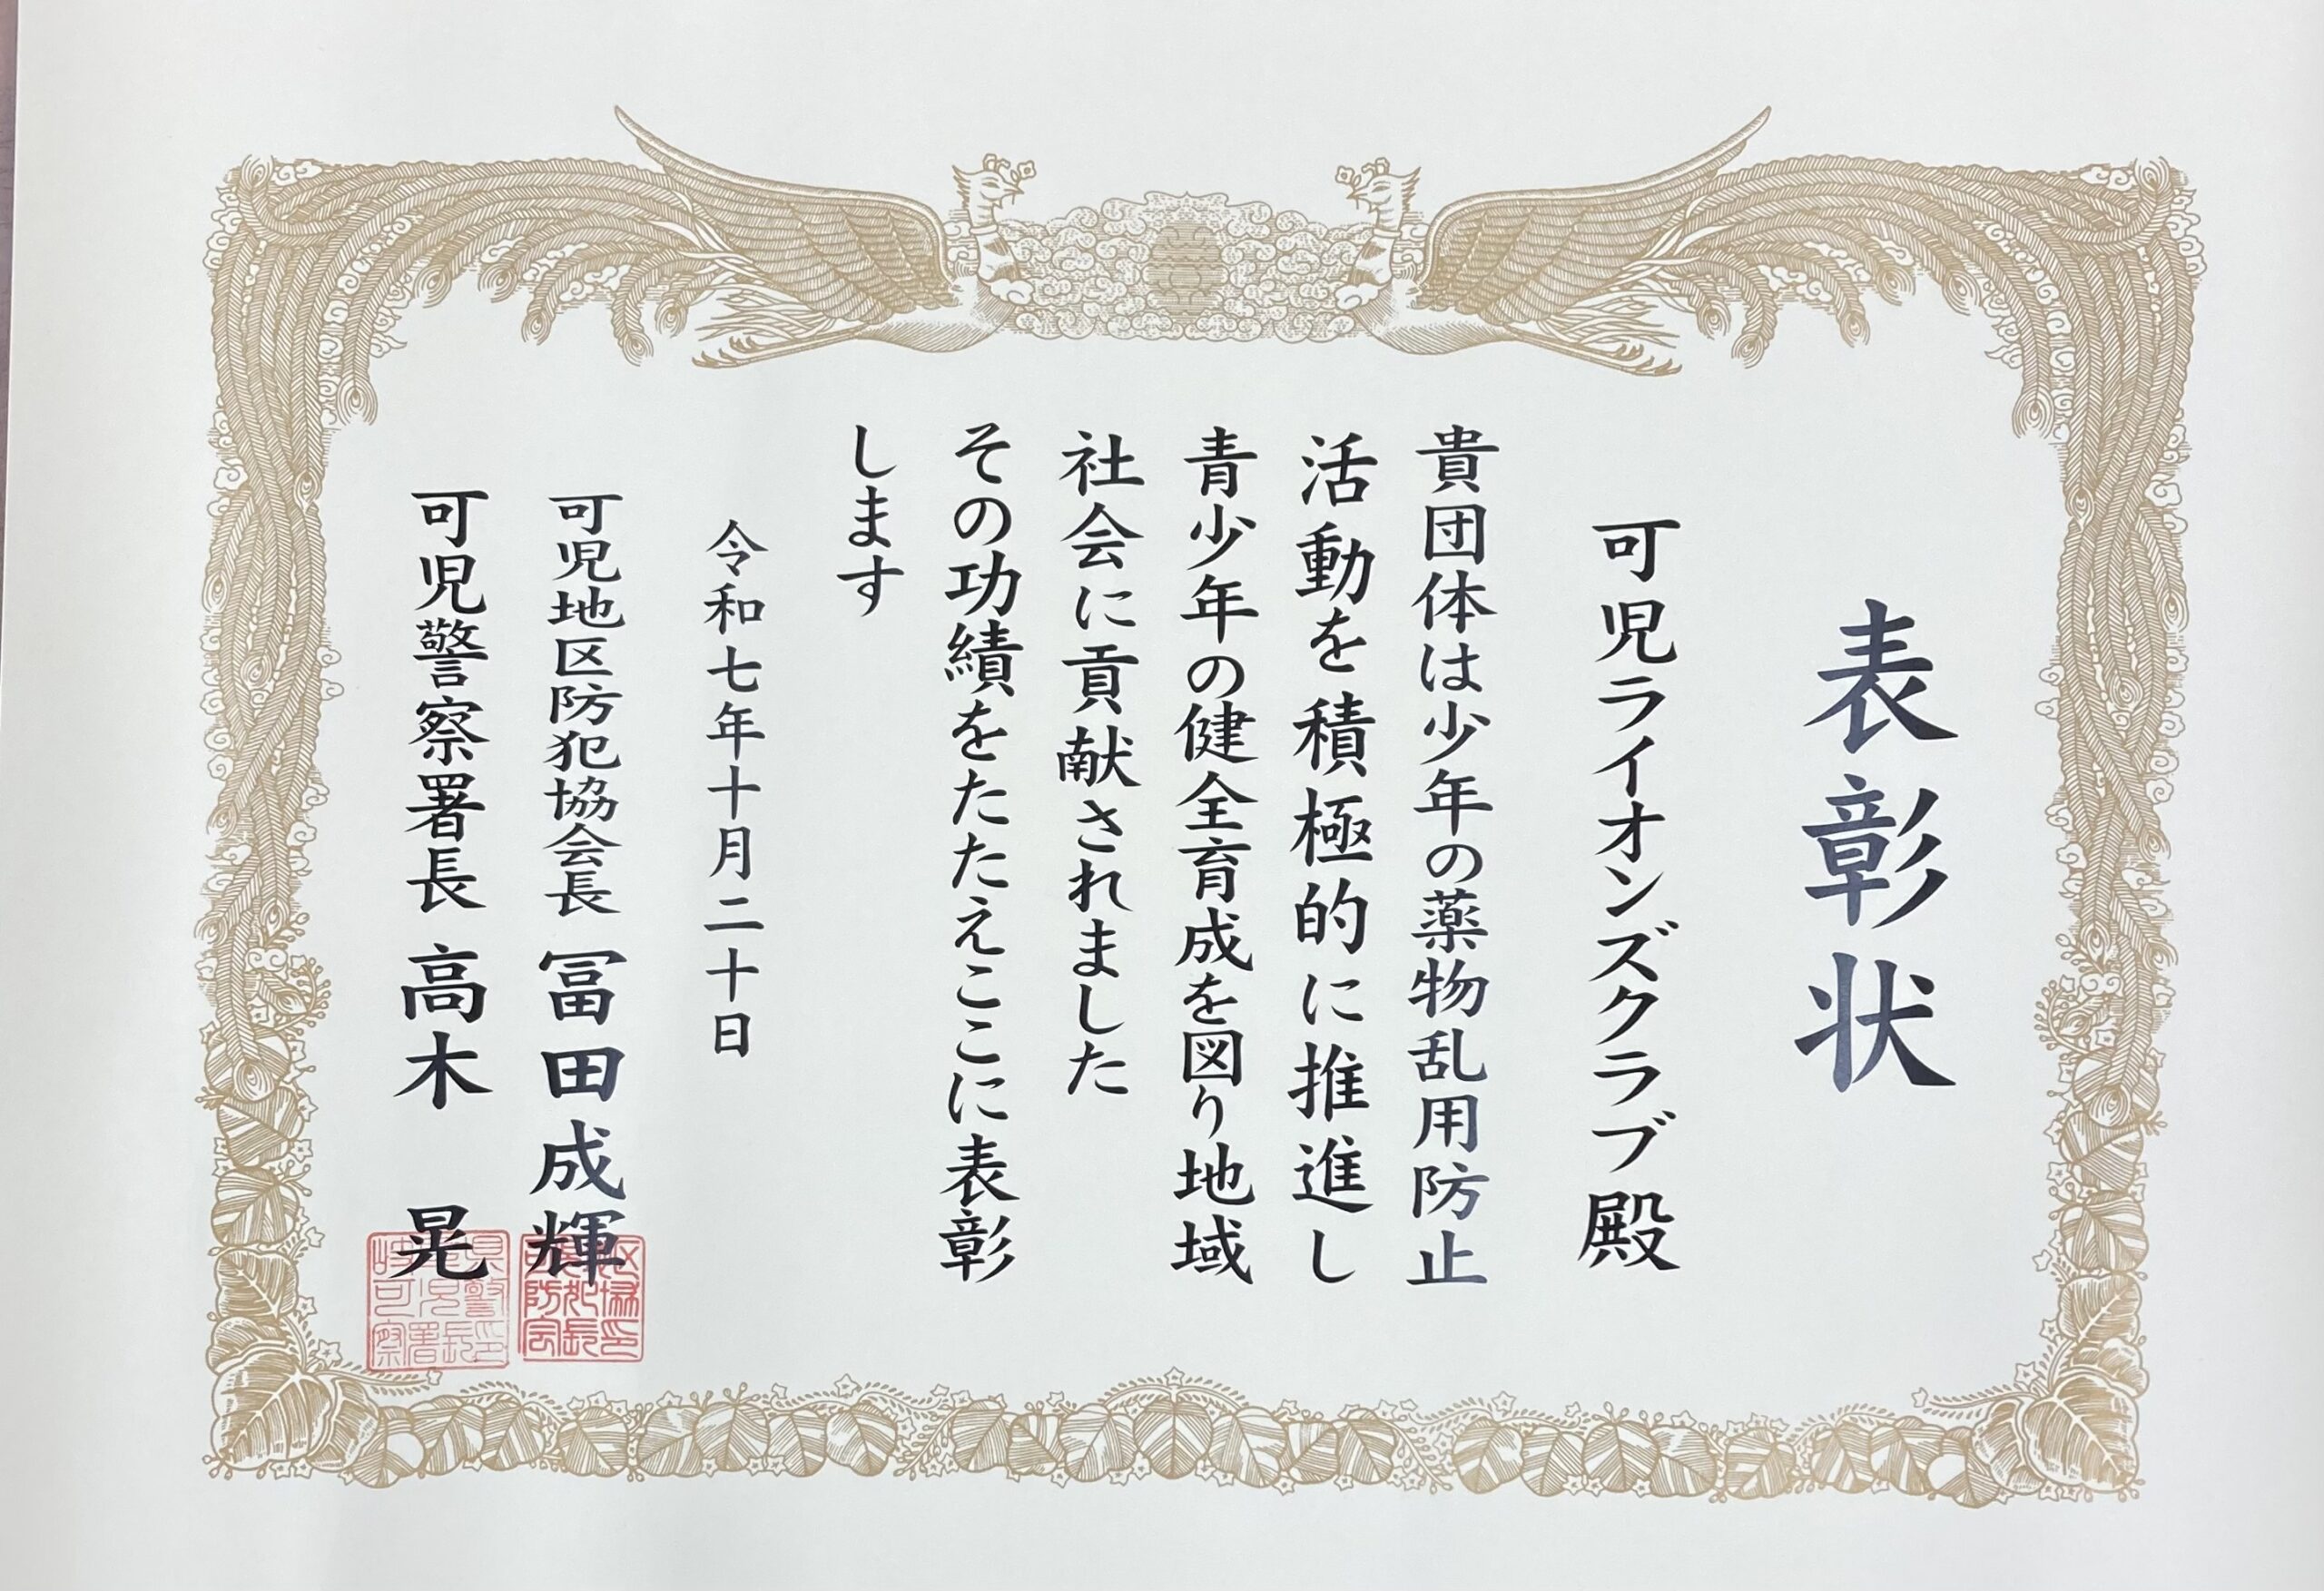 表彰状
可児ライオンズクラブ殿
貴団体は少年の薬物乱用防止
活動を積極的に推進し
青少年の健全育成を図り地域
社会に貢献されました
その功績をたたえここに表彰
します
令和七年十月二十日
可児地区防犯協会長 冨田成輝
可児警察署長 高木 晃